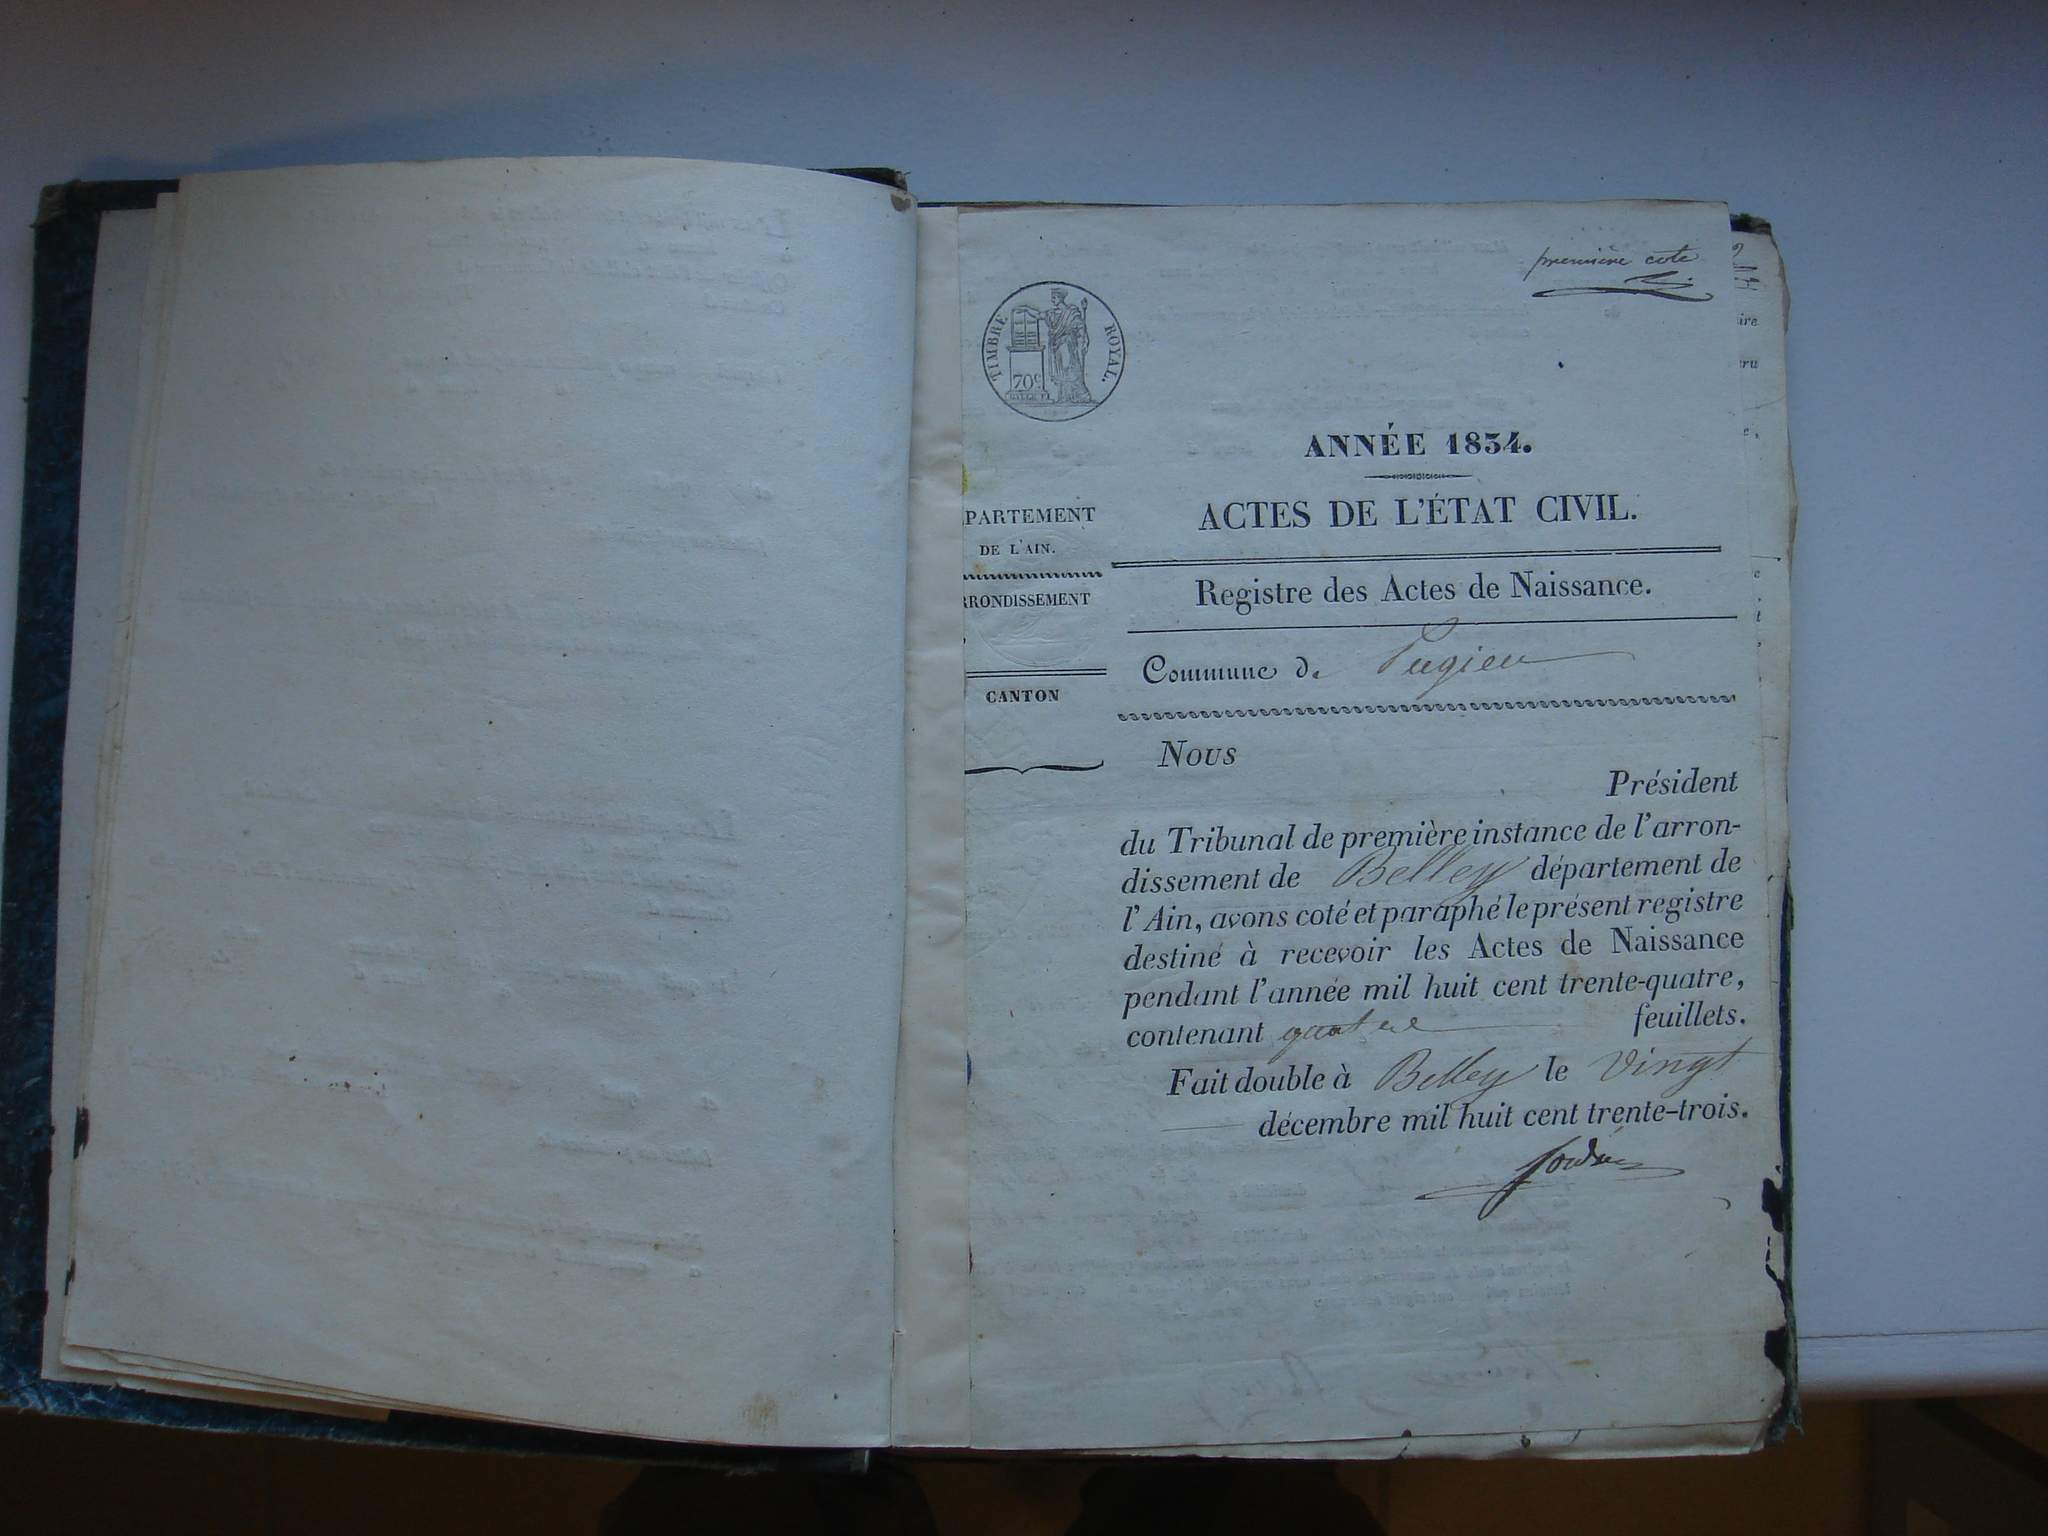 première cote
TIMBRE ROYAL.
70c
ANNÉE 1834.
ACTES DE L'ÉTAT CIVIL.
PARTEMENT
DE L'AIN.
Registre des Actes de Naissance.
RRONDISSEMENT
Commune de Pugieu
CANTON
Nous
Président
du Tribunal de première instance de l'arron-
dissement de Belley département de
l'Ain, avons coté et paraphé le présent registre
destiné à recevoir les Actes de Naissance
pendant l'année mil huit cent trente-quatre,
contenant quatre feuillets.
Fait double à Belley le vingt
décembre mil huit cent trente-trois.